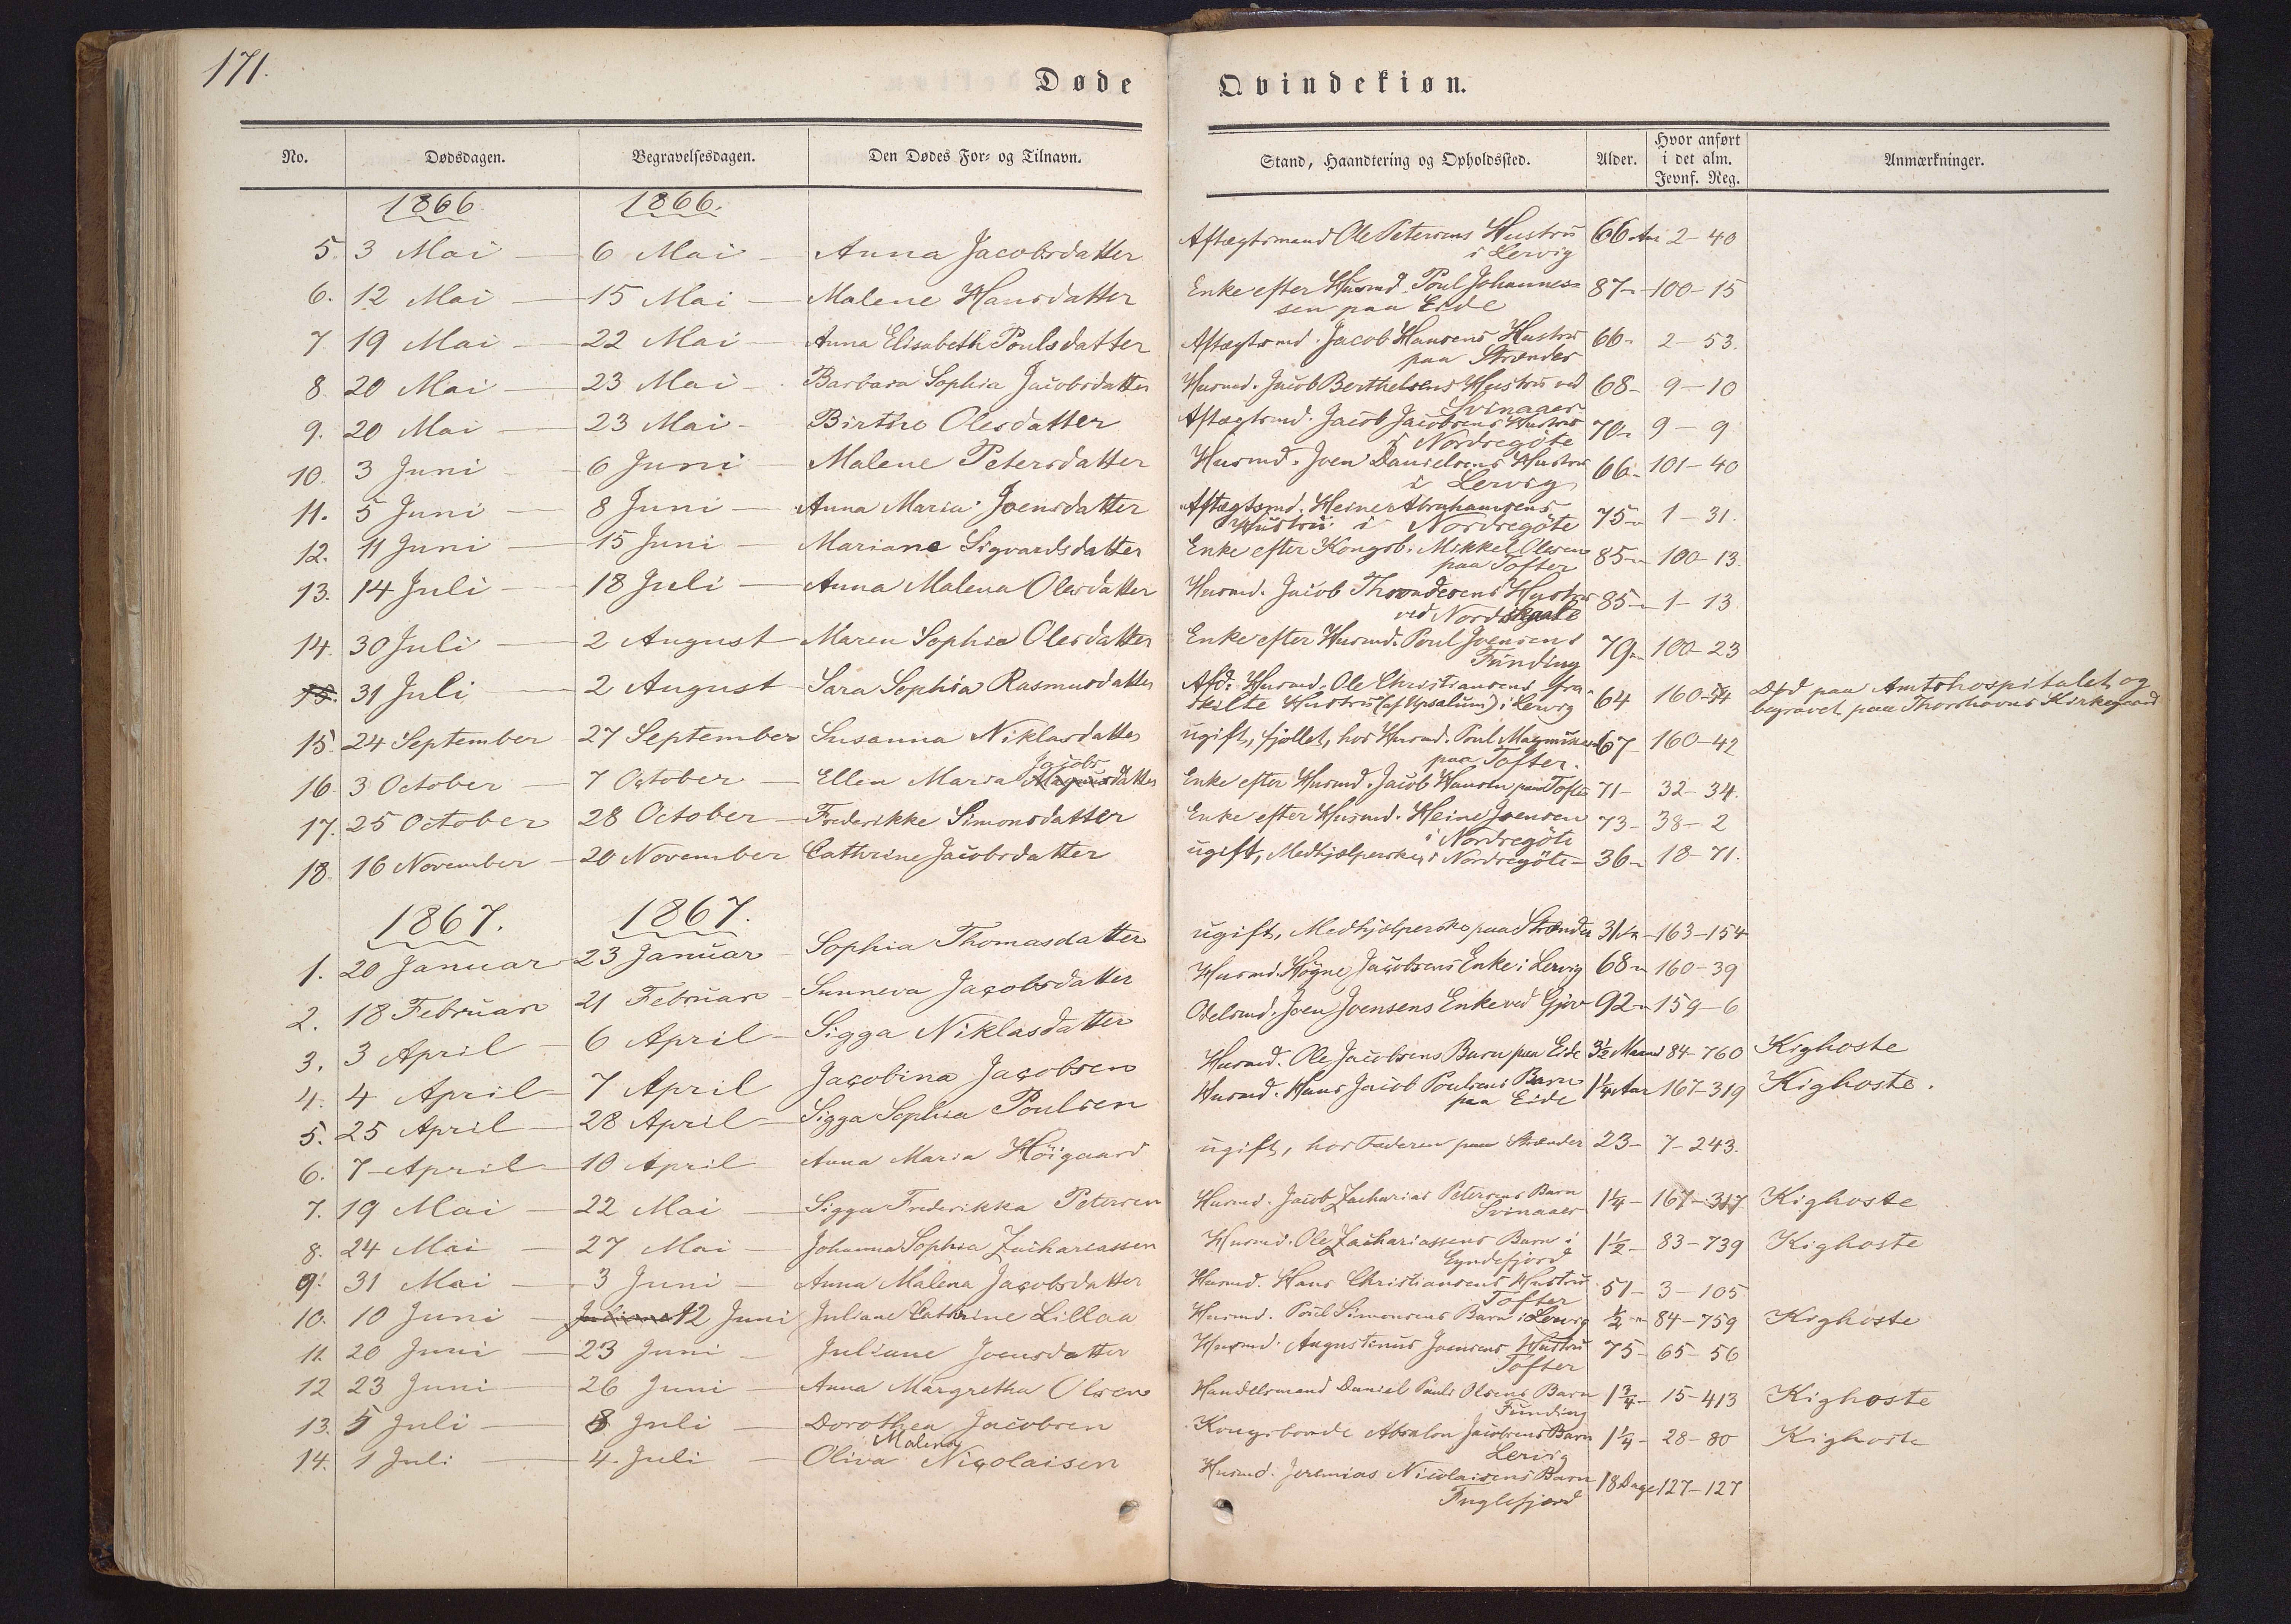 171.
Døde Qvindekiøn.
No. Dødsdagen. Begravelsesdagen. Den Dødes For- og Tilnavn. Stand, Haandtering og Opholdssted. Alder. Hvor anført i det alm. Jevnf. Reg. Anmærkninger.
1866. 1866.
5. 3 Mai 6 Mai Anna Jacobsdatter Aftægtsmand Ole Petersens Hustru i Lervig 66 Aar 2-40
6. 12 Mai 15 Mai Malene Hansdatter Enke efter Husmd. Poul Johannes=
sen paa Eide 87 100-15
7. 19 Mai 22 Mai Anna Elisabeth Poulsdatter Aftægtsmd. Jacob Hansens Hustru
paa Strænder 66 2-53.
8. 20 Mai 23 Mai Barbara Sophia Jacobsdatter Husmd. Jacob Berthelsens Hustru ved
Svinaaer 68 9-10
9. 20 Mai 23 Mai Birthe Olesdatter Aftægtsmd. Jacob Jacobsens Hustru
i Nordregöte 70 9-9
10. 3 Juni 6 Juni Malene Petersdatter Husmd. Joen Danielsens Hustru
i Lervig 66 101-40
11. 5 Juni 8 Juni Anna Maria Joensdatter Aftægtsmd. Heine Abrahamsens
Hustru i Nordregöte 75 1-31.
12. 11 Juni 15 Juni Mariane Sigvardsdatter Enke efter Kongsb. Mikkel Olesen
paa Tofter 85 100-13.
13. 14 Juli 18 Juli Anna Malena Olesdatter Husmd. Jacob Throndesens Hustru
ved Nordskaale 85 1-13
14. 30 Juli 2 August Maren Sophie Olesdatter Enke efter Husmd. Poul Joensens
Funding 79 100-23
15. 31 Juli 2 August Sara Sophia Rasmusdatter Afd. Husmd. Ole Christiansens fra-
skilte Hustru (af Upsalum) i Lervig 64 160- Død paa Amtshospitalet og
begravet paa Thorshavns Kirkegaard
15. 24 September 27 September Susanna Niklasdatter ugift, fjollet, hos Husmd. Poul Magnusen
paa Tofter. 67 160-42
16. 3 October 7 October Ellen Maria Jacobsdatter Enke efter Husmd. Jacob Hansen paa Tofter 71 32-34.
17. 25 October 28 October Frederikke Simonsdatter Enke efter Husmd. Heine Joensen
i Nordregöte 73 38-2
18. 16 November 20 November Cathrine Jacobsdatter ugift, Medhjelperske, i Nordregöte 36 18-71.
1867. 1867.
1. 20 Januar 23 Januar Sophia Thomasdatter ugift, Medhjelperske paa Strænder 31 163-154
2. 18 Februar 21 Februar Sunneva Jacobsdatter Husmd. Högne Jacobsens Enke i Lervig 68 160-39
3. 3 April 6 April Sigga Niklasdatter Odelsmd. Joen Joensens Enke ved Gjov 92 159-6
4. 4 April 7 April Jacobina Jacobsen Husmd. Ole Jacobsens Barn paa Eide 3½ Maaned 84-760 Kighoste
5. 25 April 28 April Sigga Sophia Poulsen Husmd. Hans Jacob Poulsens Barn
paa Eide 1¼ Aar 167-319 Kighoste.
6. 7 April 10 April Anna Maria Höigaard ugift, hos Faderen paa Strænder 23 7-243.
7. 19 Mai 22 Mai Sigga Frederikka Petersen Husmd. Jacob Zacharias Petersens Barn
Svinaaer 1¼ 167-317 Kighoste
8. 24 Mai 27 Mai Johanna Sophia Zachariassen Husmd. Ole Zachariassens Barn i
Fundefjord 1½ 83-739 Kighoste
9. 31 Mai 3 Juni Anna Malena Jacobsdatter Husmd. Hans Christiansens Hustru
Tofter 51 3-105
10. 10 Juni 12 Juni Juliane Cathrine Lillaa Husmd. Poul Simonsens Barn i Lervig ½ 84-759 Kighoste
11. 20 Juni 23 Juni Juliane Joensdatter Husmd. Augustinus Joensens Hustru
Tofter 75 65-56
12 23 Juni 26 Juni Anna Margretha Olsen Handelsmand Daniel Pauli Olsens Barn
Funding 1¾ 15-413 Kighoste
13. 5 Juli 8 Juli Dorothea Jacobsen Kongsbonde Absalon Jacobsens Barn
Lervig 1¼ 28-80 Kighoste
14. 1 Juli 4 Juli Oliva Malena Nicolaisen Husmd. Jeremias Nicolaisens Barn
Fuglefjord 18 Dage 127-127